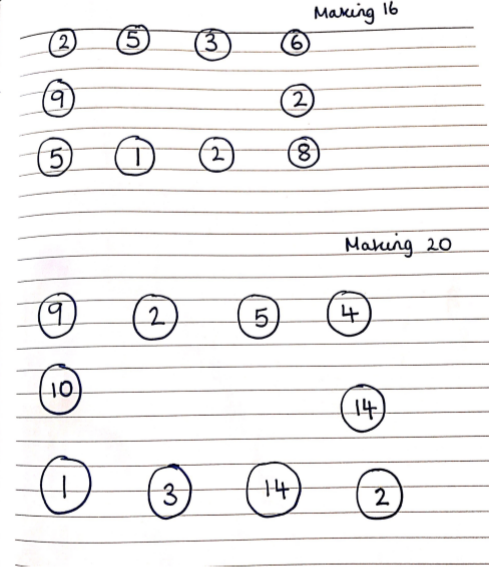 Making 16
2 5 3 6
9 2
5 1 2 8
Making 20
9 2 5 4
10
14
1 3 14 2